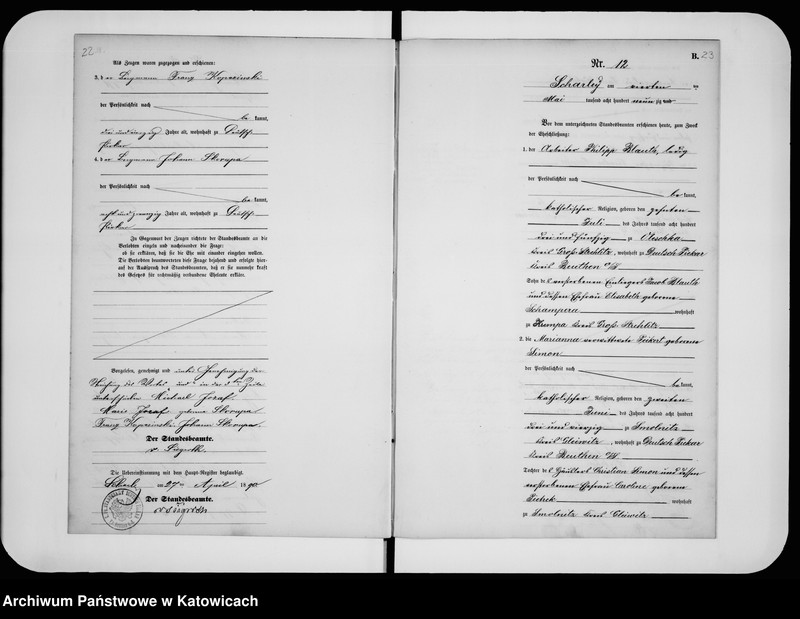 22
Als Zeugen waren zugezogen und erschienen:
3. der Bergmann Franz Kopezinski
der Persönlichkeit nach
be kannt,
drei und zwanzig Jahre alt, wohnhaft zu Deutsch
Piekar
4. der Bergmann Johann Skrupa
der Persönlichkeit nach
be kannt,
acht und zwanzig Jahre alt, wohnhaft zu Deutsch
Piekar
In Gegenwart der Zeugen richtete der Standesbeamte an die
Verlobten einzeln und nacheinander die Frage:
ob sie erklären, daß sie die Ehe mit einander eingehen wollen.
Die Verlobten beantworteten diese Frage bejahend und erfolgte hier-
auf der Ausspruch des Standesbeamten, daß er sie nunmehr kraft
des Gesetzes für rechtmäßig verbundene Eheleute erkläre.
Vorgelesen, genehmigt und unter Genehmigung der
Streichung des Wortes und in der Zeile
unterschrieben Michael Jozef
Marie Jozef geborene Skrupa
Franz Kopezinski Johann Skrupa
Der Standesbeamte.
Die Uebereinstimmung mit dem Haupt-Register beglaubigt.
am 27ten April 1890
Der Standesbeamte.
B. 23
Nr. 12
Scharley am vierten
Mai tausend acht hundert neunzig
Vor dem unterzeichneten Standesbeamten erschienen heute, zum Zweck
der Eheschließung:
1. der Arbeiter Philipp Mauth, ledig
der Persönlichkeit nach
be kannt,
katholischer Religion, geboren den zehnten
Juli des Jahres tausend acht hundert
drei und fünfzig zu Oleschka
Kreis Groß Strehlitz, wohnhaft zu Deutsch Piekar
Kreis Beuthen O/S
Sohn des verstorbenen Einliegers Jacob Mauth
und dessen Ehefrau Elisabeth geborene
Schampera wohnhaft
zu Krempa Kreis Groß Strehlitz
2. die Marianna verwittwete Peikert geborene
Simon
der Persönlichkeit nach
be kannt,
katholischer Religion, geboren den zweiten
Juni des Jahres tausend acht hundert
drei und vierzig zu Smolnitz
Kreis Gleiwitz, wohnhaft zu Deutsch Piekar
Kreis Beuthen O/S
Tochter des Häuslers Christian Simon und dessen
verstorbenen Ehefrau Caroline geborene
wohnhaft
zu Smolnitz Kreis Gleiwitz
Archiwum Państwowe w Katowicach